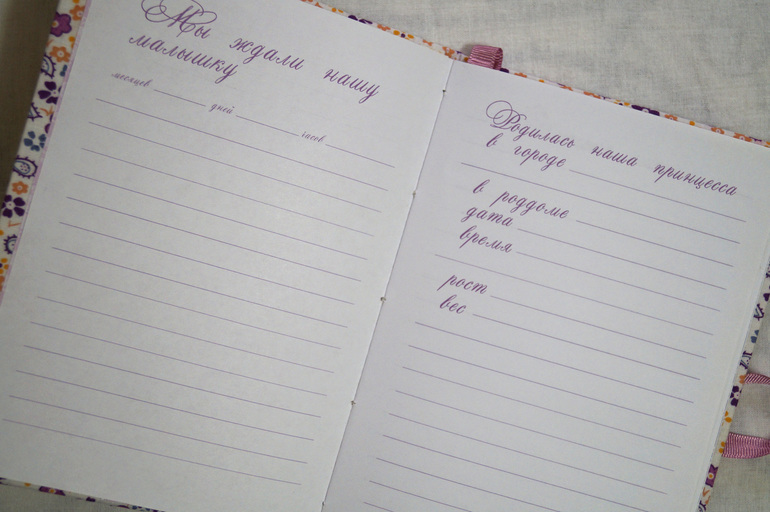 Мы ждали нашу
малышку
месяцев дней часов
Родилась наша принцесса
в городе
в роддоме
дата
время
рост
вес